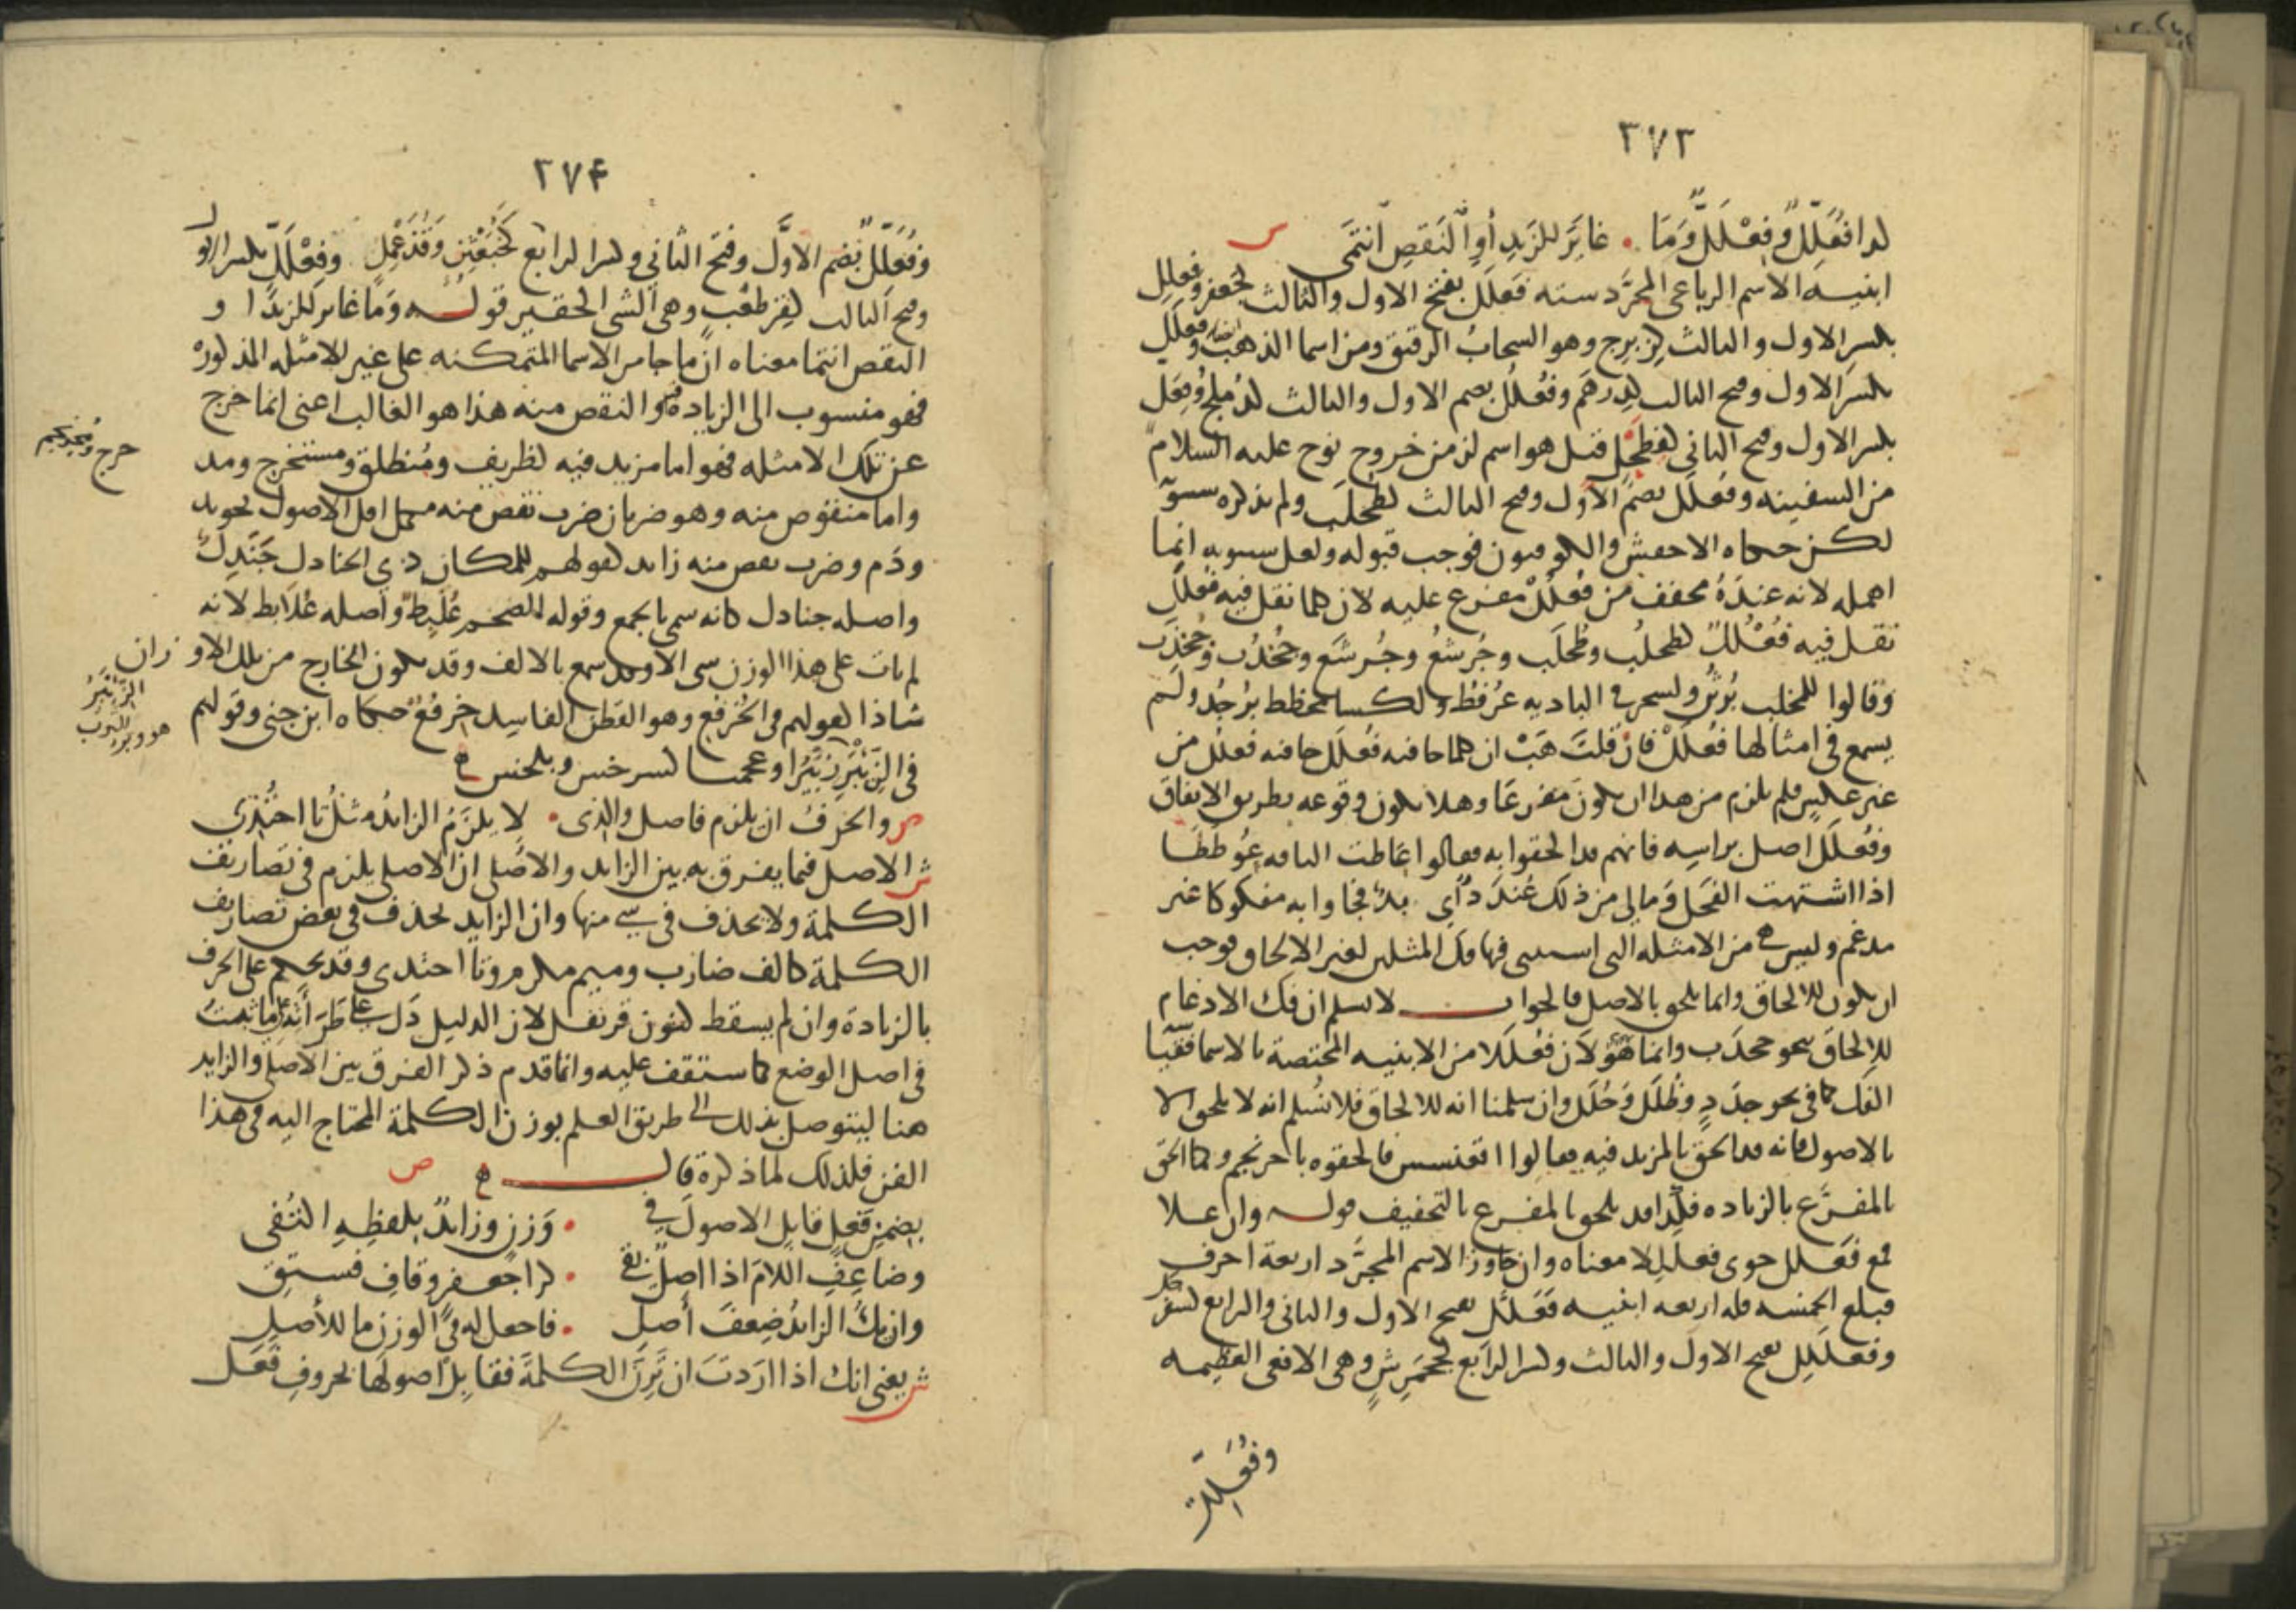 ٢٧٣
كذا فُعَلِّلٌ وفِعْلَلٌّ وَمَا . غايَرَ للزَيدِ أوِ النَقصِ انتَمَى
ش
ابنيه الاسم الرباعي المجرَّد سته فَعلَل بفتح الاول والثالث كجعفر وفِعلِل
بكسر الاول والثالث كزِبرِج وهو السحابُ الرقيق ومن اسما الذهب ايضا وفِعلَل
بكسر الاول وفتح الثالث كدِرهَم وفُعْلُل بضم الاول والثالث كدُملُج وفِعَلّ
بكسر الاول وفتح الثاني كفِطَحْل قيل هو اسم لزمن خروج نوح عليه السلام
من السفينه وفُعلَل بضم الاول وفتح الثالث كطُحلَب ولم يذكره سيبويه
لكن حكاه الاخفش والكوفيون فوجب قبوله ولعل سيبويه انما
اهمله لانه عندَهُ مخفف من فُعْلُل مفرع عليه لان كلما نقل فيه فُعلَل
نقل فيه فُعْلُلٌ كطُحلُب وطُحلَب وجُرشُع وجُرشَع وجُخدُب وجُخدَب
وقالوا للمخلب بُرثُن ولشجر في الباديه عُرفُط ولكسا مخطط بُرجُد ولم
يسمع في امثالها فُعلَل فان قلتَ هَبْ ان كلما جا فيه فُعلَل جا فيه فُعلُل من
غير عكس فلم يلزم من هذا ان يكون مفرعًا وهلا يكون وقوعه بطريق الاتفاق
وفُعلَل اصل براسِه فانهم قد الحقوا به فقالوا عاطت الناقه عُوطَطَا
اذا اشتهت الفَحل وَمالي من ذلك عُندَدٌ أي بدّ فجاوا به مفكوكا غير
مدغم وليس من الامثله التي استثني فيها فكّ المثلين لغير الالحاق فوجب
ان يكون للالحاق وانما يلحق بالاصل فالجواب لا نسلم ان فك الادغام
للالحاق بنحو جخدَب وانما هُوَ لان فُعلَلا من الابنيه المختصة بالاسما فقيَاسُه
الفك كما في نحو جدَدٍ وظُلَل وحُلَل وان سلمنا انه للالحاق فلا نسلم انه لا يلحق الا
بالاصول فانه قد الحق بالمزيد فيه فقالوا اقعنسس فالحقوه باحرنجم وكما الحق
بالمفرَّع بالزياده فكذا قد يلحق بالمفرع بالتخفيف قوله وان علا
فمع فَعَلَّل حوى فعلَلِلا معناه وان جاوز الاسم المجرَّد اربعة احرف
فبلغ الخمسه فله اربعه ابنيه فَعَلَّل بفتح الاول والثاني والرابع كسَفَرجَل
وفَعْلَلِل بفتح الاول والثالث وكسر الرابع كجَحمَرِش وهي الافعى العظيمه
وفُعَلِّل
٢٧٤
وفُعَلِّل بضم الاوَّل وفتح الثاني وكسر الرابع كخُبَعْثِن وقُذَعْمِل وفِعْلَلّ بكسر الاول
وفتح الثالث كقِرطَعْبٍ وهي الشي الحقير قوله وَمَا غايرَ للزيدا و
النقص انتما معناه انّ ما جا من الاسما المتمكنه على غير الامثله المذكورة
فهو منسوب الى الزيادة فيه والنقص منه هذا هو الغالب اعني انما خرج
عن تلك الامثله فهو اما مزيد فيه كظريف ومُنطلق ومستخرج ومد
حرج ومُحرنجم
واما منقوص منه وهو ضربان ضرب نقص منه اصل الاصول نحو يد
ودَم وضرب نقص منه زايد كقولهم للمكان ذي الجنادل جَنَدِلٌ
واصله جنادل كانه سمي بالجمع وقوله للضخم عُلَبِطٌ واصله عُلَابط لانه
لم يات على هذا الوزن شي الا وقد سمع بالالف وقد يكون الخارج من تلك الاو
زان
شاذا كقولهم في الخُرفُع وهو القطن الفاسِد خِرفُعٌ حكاه ابن جني وقولهم
الزِئبُرُ
هو وبر الثوب
في الزِئْبِر زِئبُرٌ او عجميا كسرخس وبلخس
ص والحرفُ ان يلزم فاصل والذى . لا يلزَمُ الزائدُ مثلُ تا احتُذِي
ش الاصل فيما يفرق به بين الزايد والاصلي ان الاصلي يلزم في تصاريف
الكلمة ولا يحذف في شي منها وان الزايد يحذف في بعض تصاريف
الكلمة كالف ضارب وميم مكرم وتا احتذى وقد يحكم على الحرف
بالزيادة وان لم يسقط كنون قرنفل لان الدليل دَل على طَرَيانِها على ما ثبتَ
في اصل الوضع كما ستقف عليه وانما قدم ذكر الفرق بين الاصلي والزايد
هنا ليتوصل بذلك الى طريق العلم بوزن الكلمة المحتاج اليه في هذا
الفن فلذلك لما ذكرة قال ص
بضمنِ فعلٍ قابلِ الاصولَ في . وَزنٍ وزائدٌ بلفظِهِ اكتُفى
وضاعِفِ اللامَ اذا اصلٌ بقي . كرا جعفرٍ وقافِ فستق
وان يكُ الزائدُ ضِعفَ أصل . فاجعل له في الوزنِ ما للأصلِ
ش يعني انك اذا اردتَ ان تَزِنَ الكلمةَ فقابِل اصولَها بحروفِ فَعَل